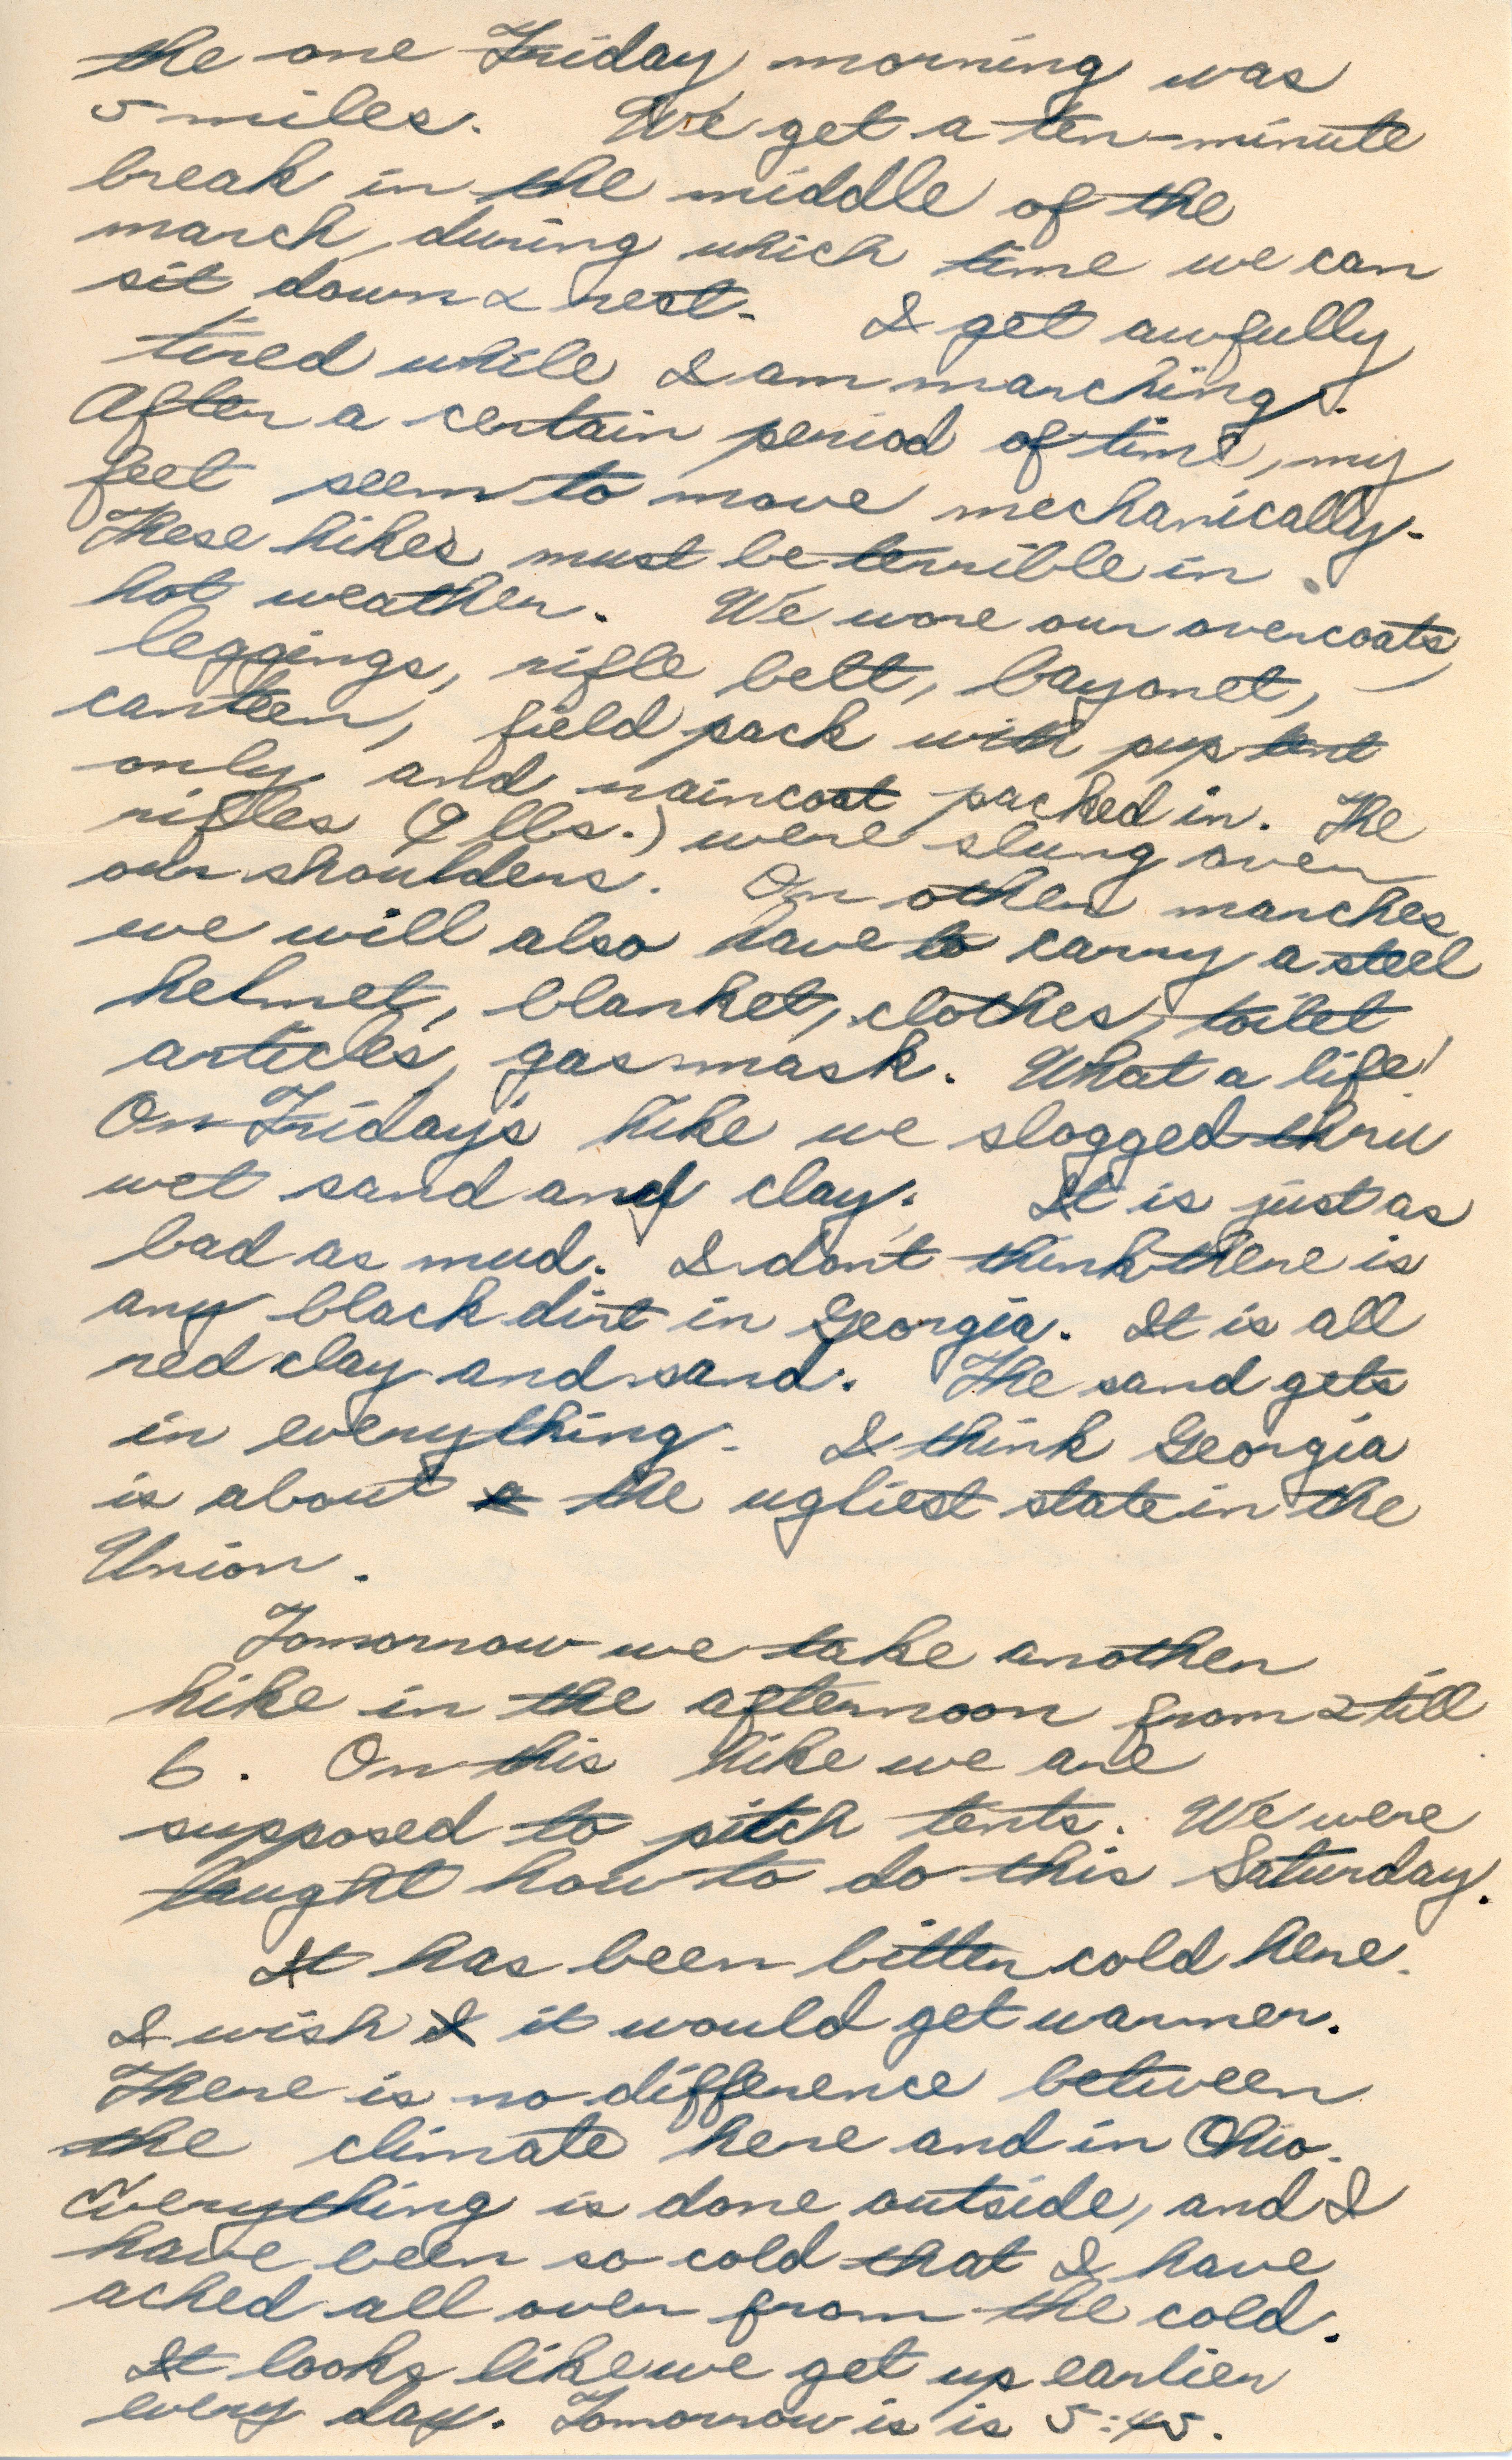 the one Friday morning was
5 miles. We get a ten-minute
break in the middle of the
march, during which time we can
sit down & rest. I get awfully
tired while I am marching.
After a certain period of time, my
feet seem to move mechanically.
These hikes must be terrible in
hot weather. We wore our overcoats,
leggings, rifle belt, bayonet,
canteen, field pack with pup tent
only and raincoat packed in. The
rifles (9 lbs.) were slung over
our shoulders. On other marches
we will also have to carry a steel
helmet, blanket, clothes, toilet
articles, gas mask. What a life!
On Friday's hike we slogged thru
wet sand and clay. It is just as
bad as mud. I don't think there is
any black dirt in Georgia. It is all
red clay and sand. The sand gets
in everything. I think Georgia
is about a the ugliest state in the
Union.
Tomorrow we take another
hike in the afternoon from 2 till
6. On this hike we are
supposed to pitch tents. We were
taught how to do this Saturday.
It has been bitter cold here.
I wish I it would get warmer.
There is no difference between
the climate here and in Ohio.
Everything is done outside, and I
have been so cold that I have
ached all over from the cold.
It looks like we get up earlier
every day. Tomorrow is is 5:45.